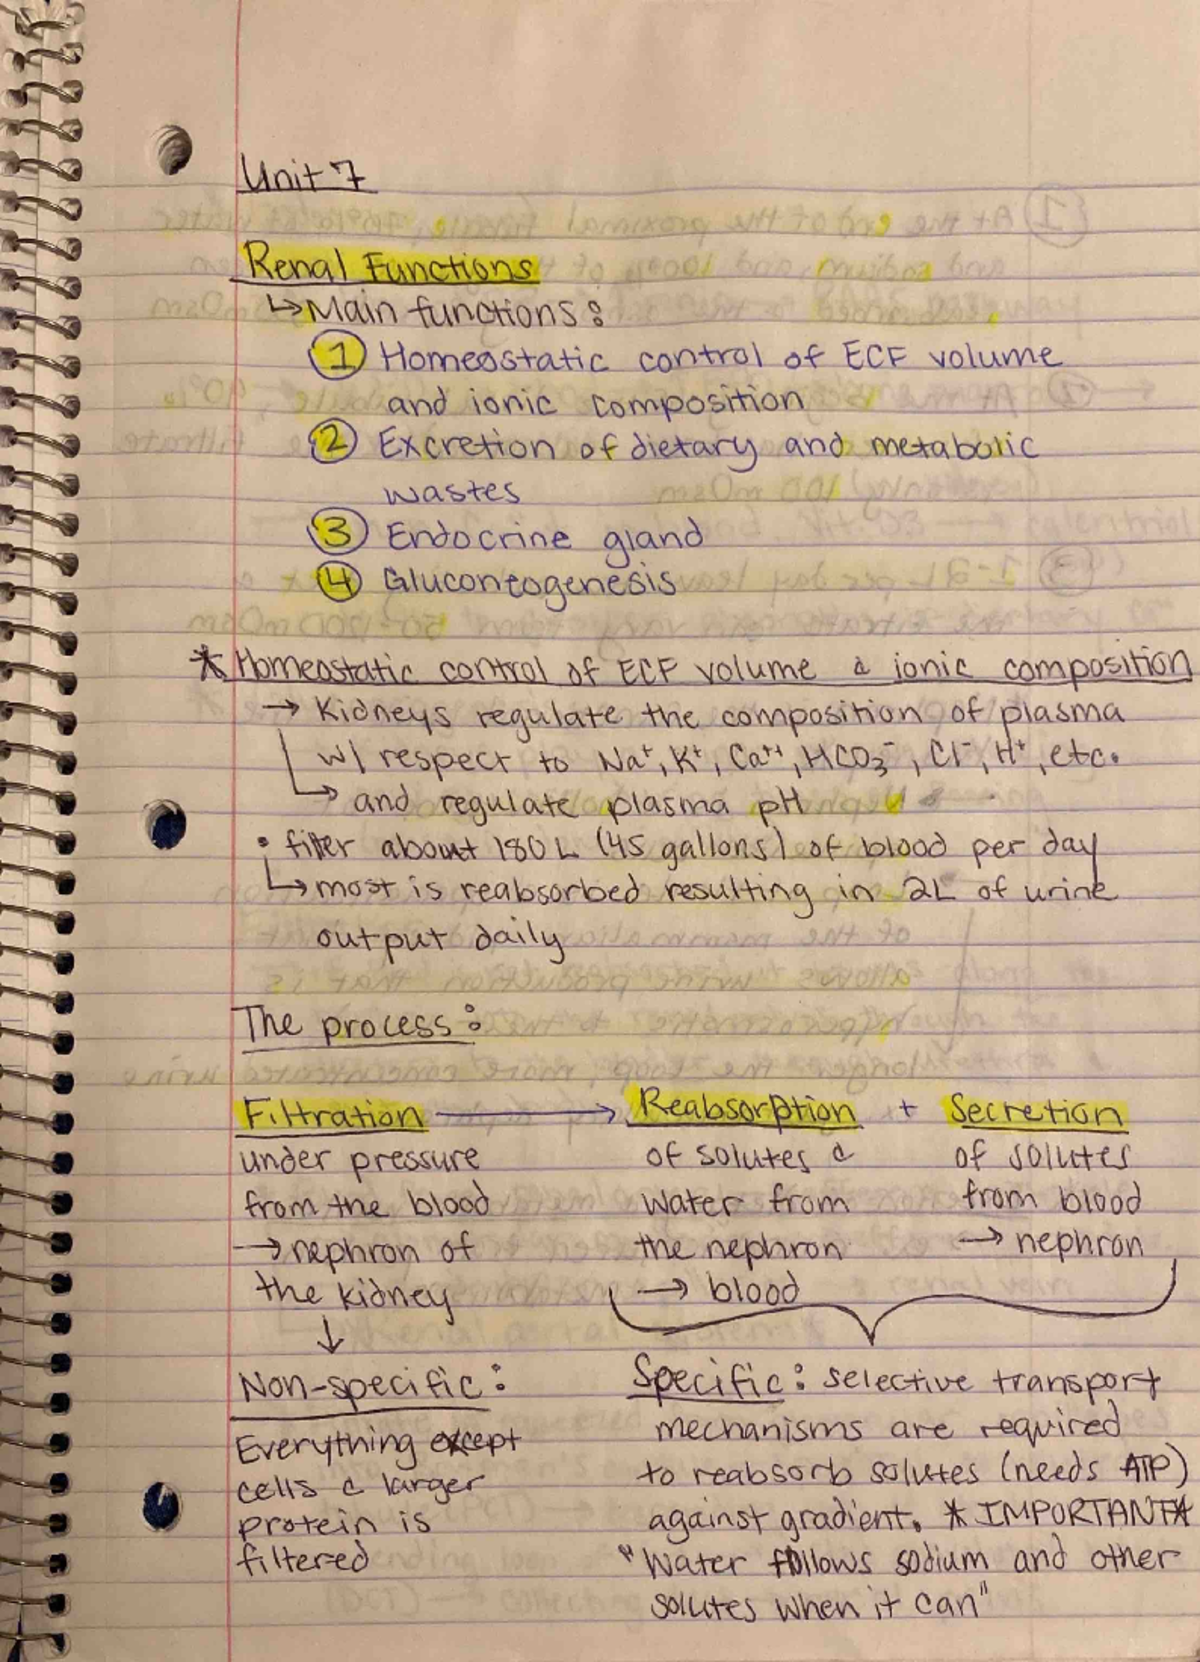 Unit 7
Renal Functions
↳ Main functions:
① Homeostatic control of ECF volume
and ionic composition
② Excretion of dietary and metabolic
wastes
③ Endocrine gland
④ Gluconeogenesis
* Homeostatic control of ECF volume & ionic composition
→ Kidneys regulate the composition of plasma
w/ respect to Na⁺, K⁺, Ca⁺⁺, HCO₃⁻, Cl⁻, H⁺, etc.
↳ and regulate plasma pH
• filter about 180 L (45 gallons) of blood per day
↳ most is reabsorbed resulting in 2L of urine
output daily
The process:
Filtration → Reabsorption + Secretion
under pressure of solutes & of solutes
from the blood water from from blood
→ nephron of the nephron → nephron
the kidney → blood
↓
Non-specific: Specific: selective transport
Everything except mechanisms are required
cells & larger to reabsorb solutes (needs ATP)
protein is against gradient. * IMPORTANT *
filtered "Water follows sodium and other
solutes when it can"